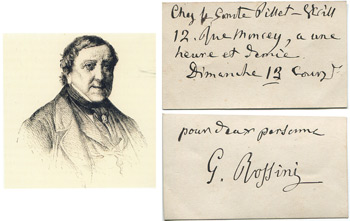 Chez le Comte Pillet-Will
12. Rue Moncey, a une
heure et demie
Dimanche 13 Couṛt
pour deux personne
G. Rossini